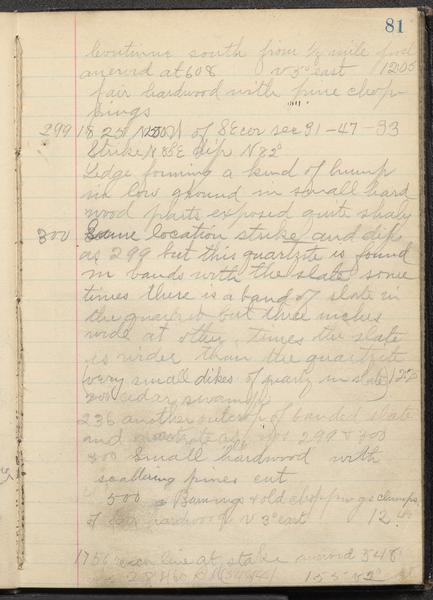 81
Continue south from 1/2 mile post
aneroid at 608 V 3° east 1205
fair hardwood with pine chop-
pings
299 18 25 N of SE cor sec 31-47-33
Strike N 88°E dip N 82°
Ledge forming a kind of hump
in low ground in small hard
wood parts exposed quite shaly
300 Same location strike and dip
as 299 but this quartzite is found
in bands with the slate some
times there is a band of slate in
the quartzite but three inches
wide at other times the slate
is wider than the quartzite
(very small dikes of quartz in slate) 122
200 cedar swamp
236 another outcrop of banded slate
and quartzite as 299 & 300
300 Small hardwood with
scattering pines cut
500 Burning & old choppings clumps
of fair hardwood V 3° east 12
1756 line at stake aneroid 548